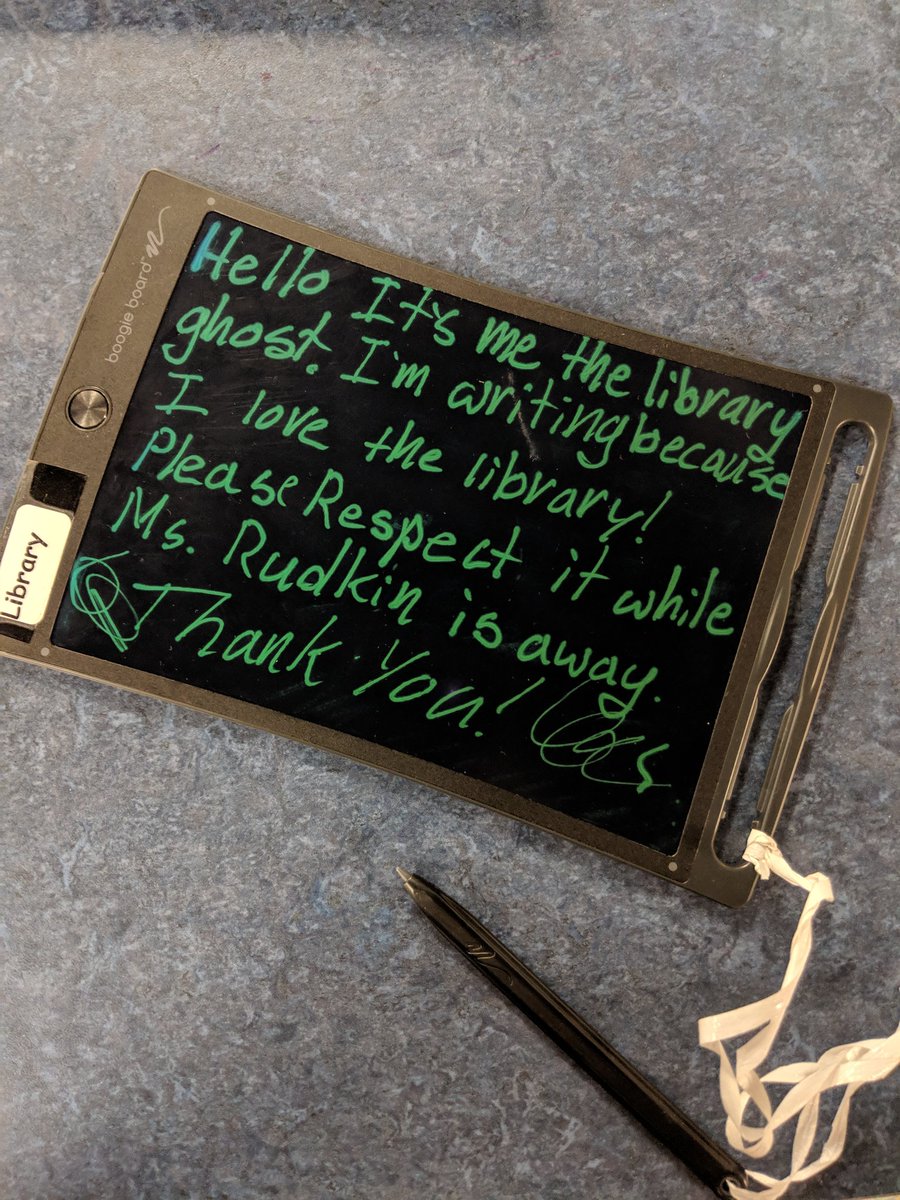 boogie board
Library
Hello It's me the library
ghost. I'm writing because
I love the library!
Please Respect it while
Ms. Rudkin is away.
Thank You!